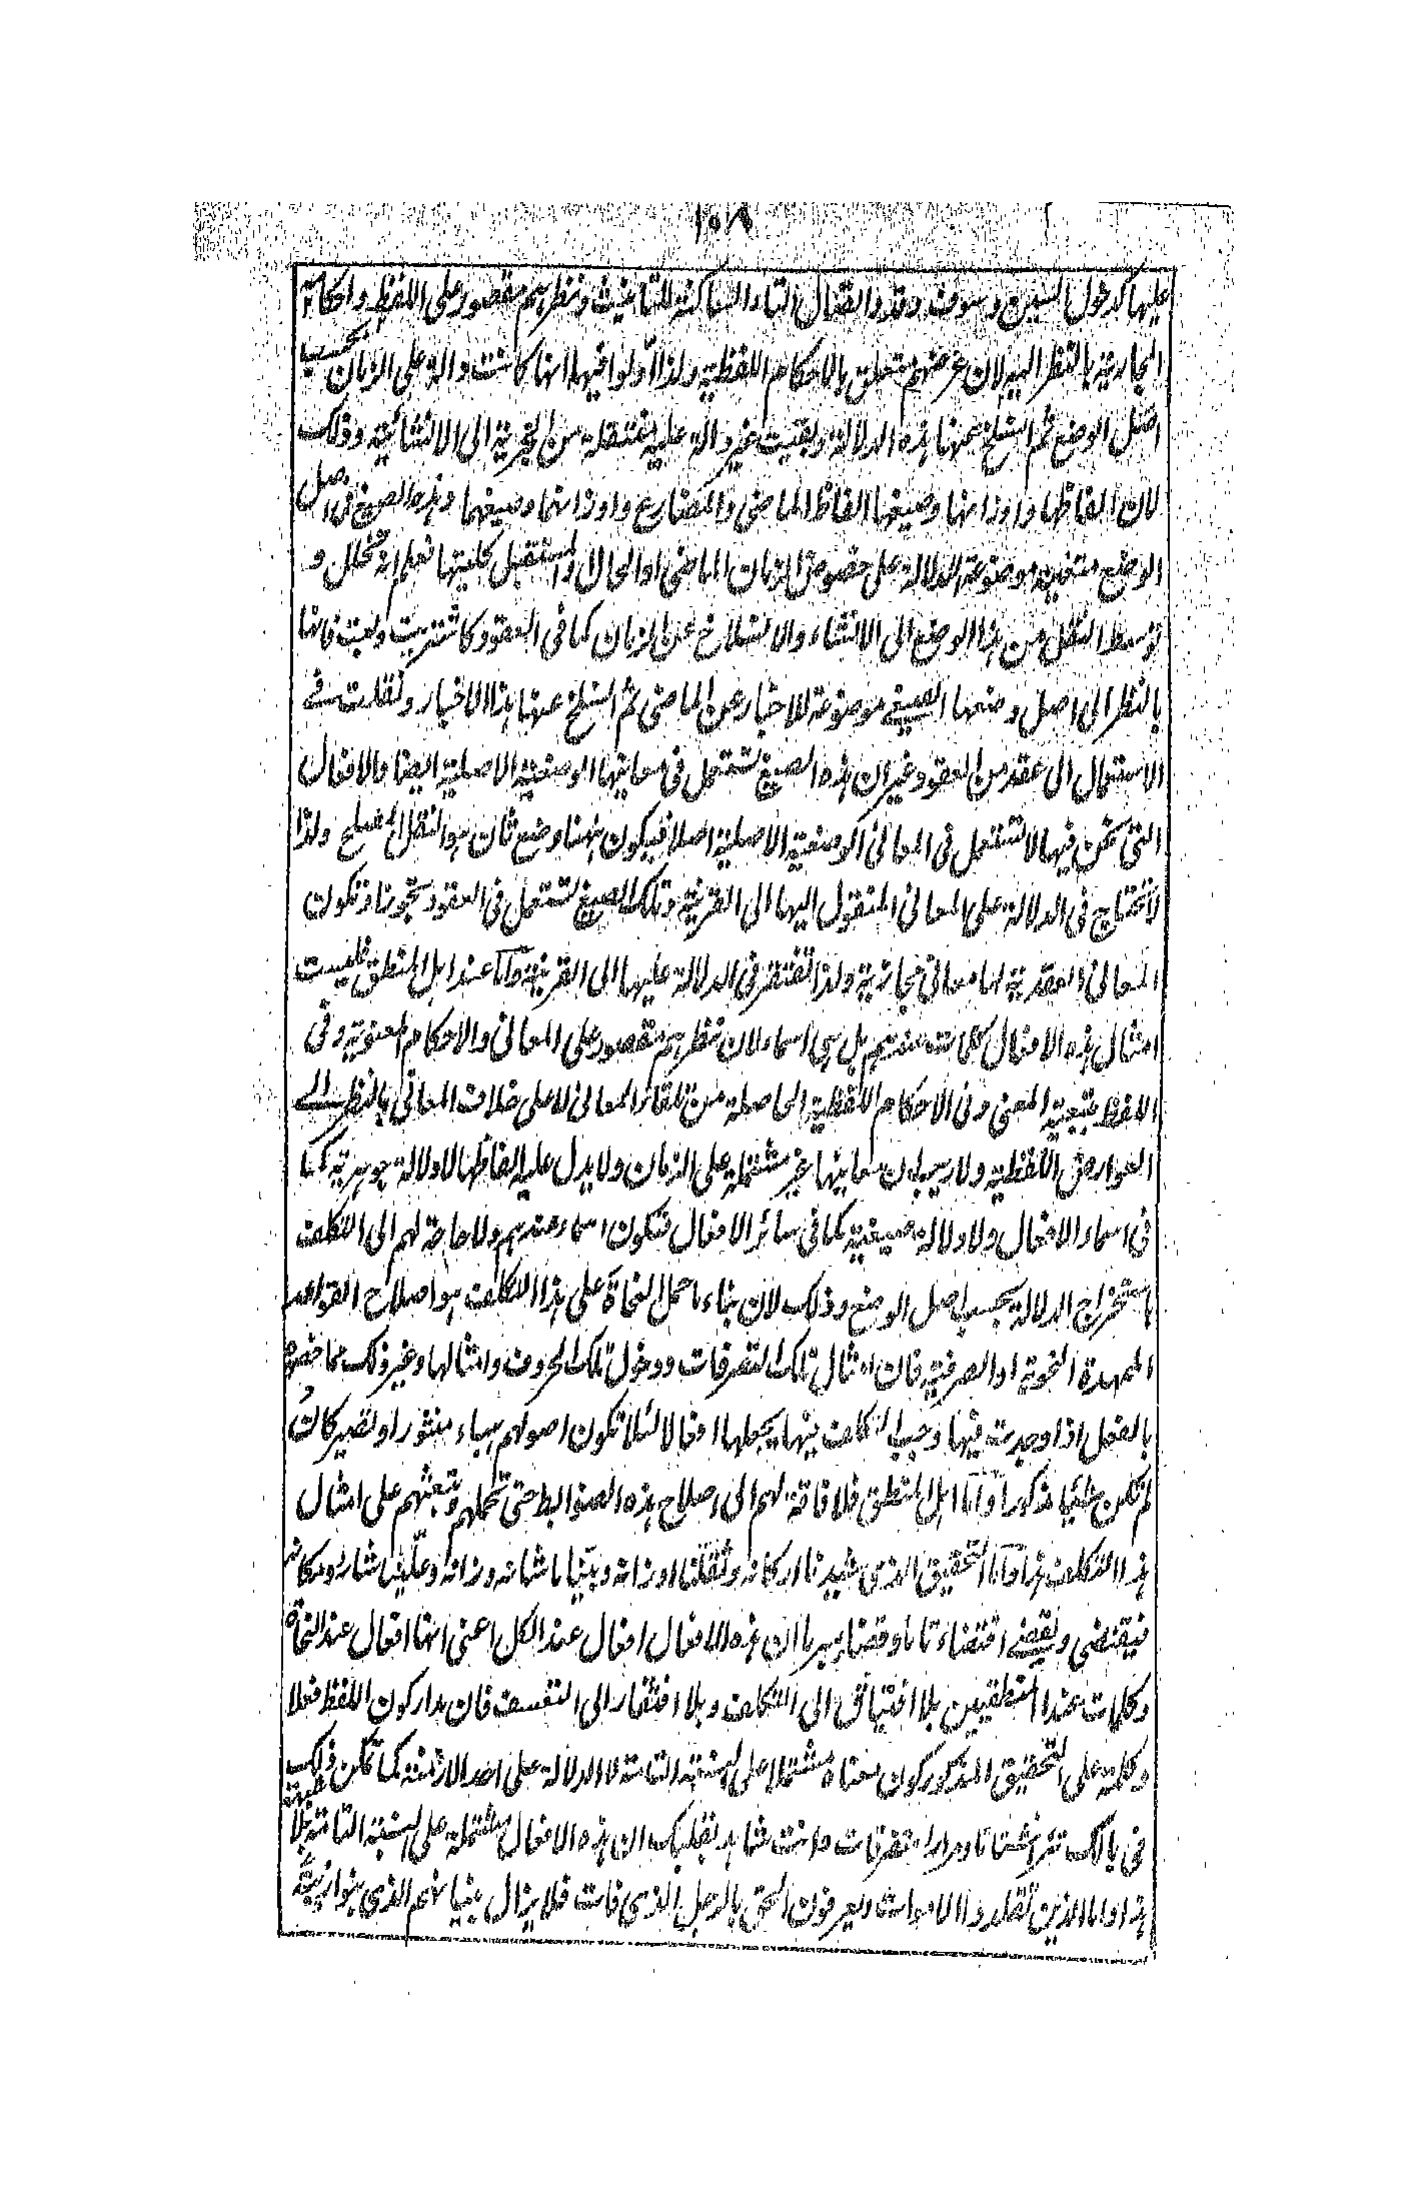 ١٠٨
عليها كدخول السين وسوف وقد واتصال التاء الساكنة للتانيث ونظرهم مقصور على اللفظ واحكامه
الجارية بالنظر اليه لان غرضهم متعلق بالاحكام اللفظية ولذا اولوا فيها انها كانت دالة على الزمان بحسب
اصل الوضع ثم انسلخ عنها هذه الدلالة وبقيت غير دالة عليه منتقلة من الخبرية الى الانشائية وذلك
لان الفاظها واوزانها وصيغها الفاظ الماضى والمضارع واوزانهما وصيغهما وهذه الصيغ فى اصل
الوضع متعينة موضوعة للدلالة على خصوص الزمان الماضى او الحال والمستقبل كليتها فعلم انه تخلل و
توسط النقل من هذا الوضع الى الانشاء والانسلاخ عن الزمان كما فى العقود كاشتريت وبعت فانها
بالنظر الى اصل وضعها الصيغے موضوعة للاخبار عن الماضى ثم انسلخ عنها هذا الاخبار ونقلت فے
الاستعمال الى عقد من العقود غير ان هذه الصيغ تستعمل فى معانيها الوضعية الاصلية ايضا والافعال
التى نحن فيها لا تستعمل فى المعانى الوضعية الاصلية اصلا فيكون ههنا وضع ثان هو النقل المصطلح ولذا
لا تحتاج فى الدلالة على المعانى المنقول اليها الى القرينة وتلك الصيغ تستعمل فى العقود تجوزا وتكون
المعانى العقدية لها معانى مجازية ولذا تفتقر فى الدلالة عليها الى القرينة واما عند اهل المنطق فليست
امثال هذه الافعال كلمات عندهم بل هى اسماء لان نظرهم مقصور على المعانى والاحكام المعنوية وفى
اللفظ بتبعية المعنى وفى الاحكام اللفظية الحاصلة من تلقاء المعانى لا على خلاف المعانى بالنظر الے
العوارض اللفظية ولا ريب ان معانيها غير مشتملة على الزمان ولا يدل عليه الفاظها لا دلالة جوهرية كما
فى اسماء الافعال ولا دلالة صيغية كما فى سائر الافعال فتكون اسماء عندهم ولا حاجة لهم الى التكلف
باستخراج الدلالة بحسب اصل الوضع وذلك لان بناء ما حمل النحاة على هذا التكلف هو اصلاح القواعد
الممهدة النحوية او الصرفية فان امثال تلك التصرفات ودخول تلك الحروف وامثالها وغير ذلك مما خصوه
بالفعل اذا وجدت فيها وجب التكلف فيها بجعلها افعالا لئلا تكون اصولهم هباء منثورا وتصير كان
لم تكن شيئا مذكورا واما اهل المنطق فلا فاقة لهم الى اصلاح هذه الضوابط حتى تحملهم وتبعثهم على امثال
هذا التكلف هذا واما التحقيق الذى شيدنا اركانه وثقلنا اوزانه وبينا ما شانه وزانه وعلينا شانه ومكانه
فيقتضى ويقضے اقتضاء تاما وقضاء مبرما ان هذه الافعال افعال عند الكل اعنى انها افعال عند النحاة
وكلمات عند المنطقيين بلا افتياق الى التكلف وبلا افتقار الى التعسف فان مدار كون اللفظ فعلا
وكلمة على التحقيق المذكور كون معناه مشتملا على النسبة التامة لا الدلالة على احد الازمنة كما تمكن ذلك
فى بالك تقررا شتاتا ومرارا متفرقات وانت شاهد بقلبك ان هذه الافعال مشتملة على النسبة التامة بلا شبهة
هذا واما الذين تقلدوا الاموات ويعرفون الحق بالرجل الذى فات فلا يزال بنيانهم الذى بنوا ريبة